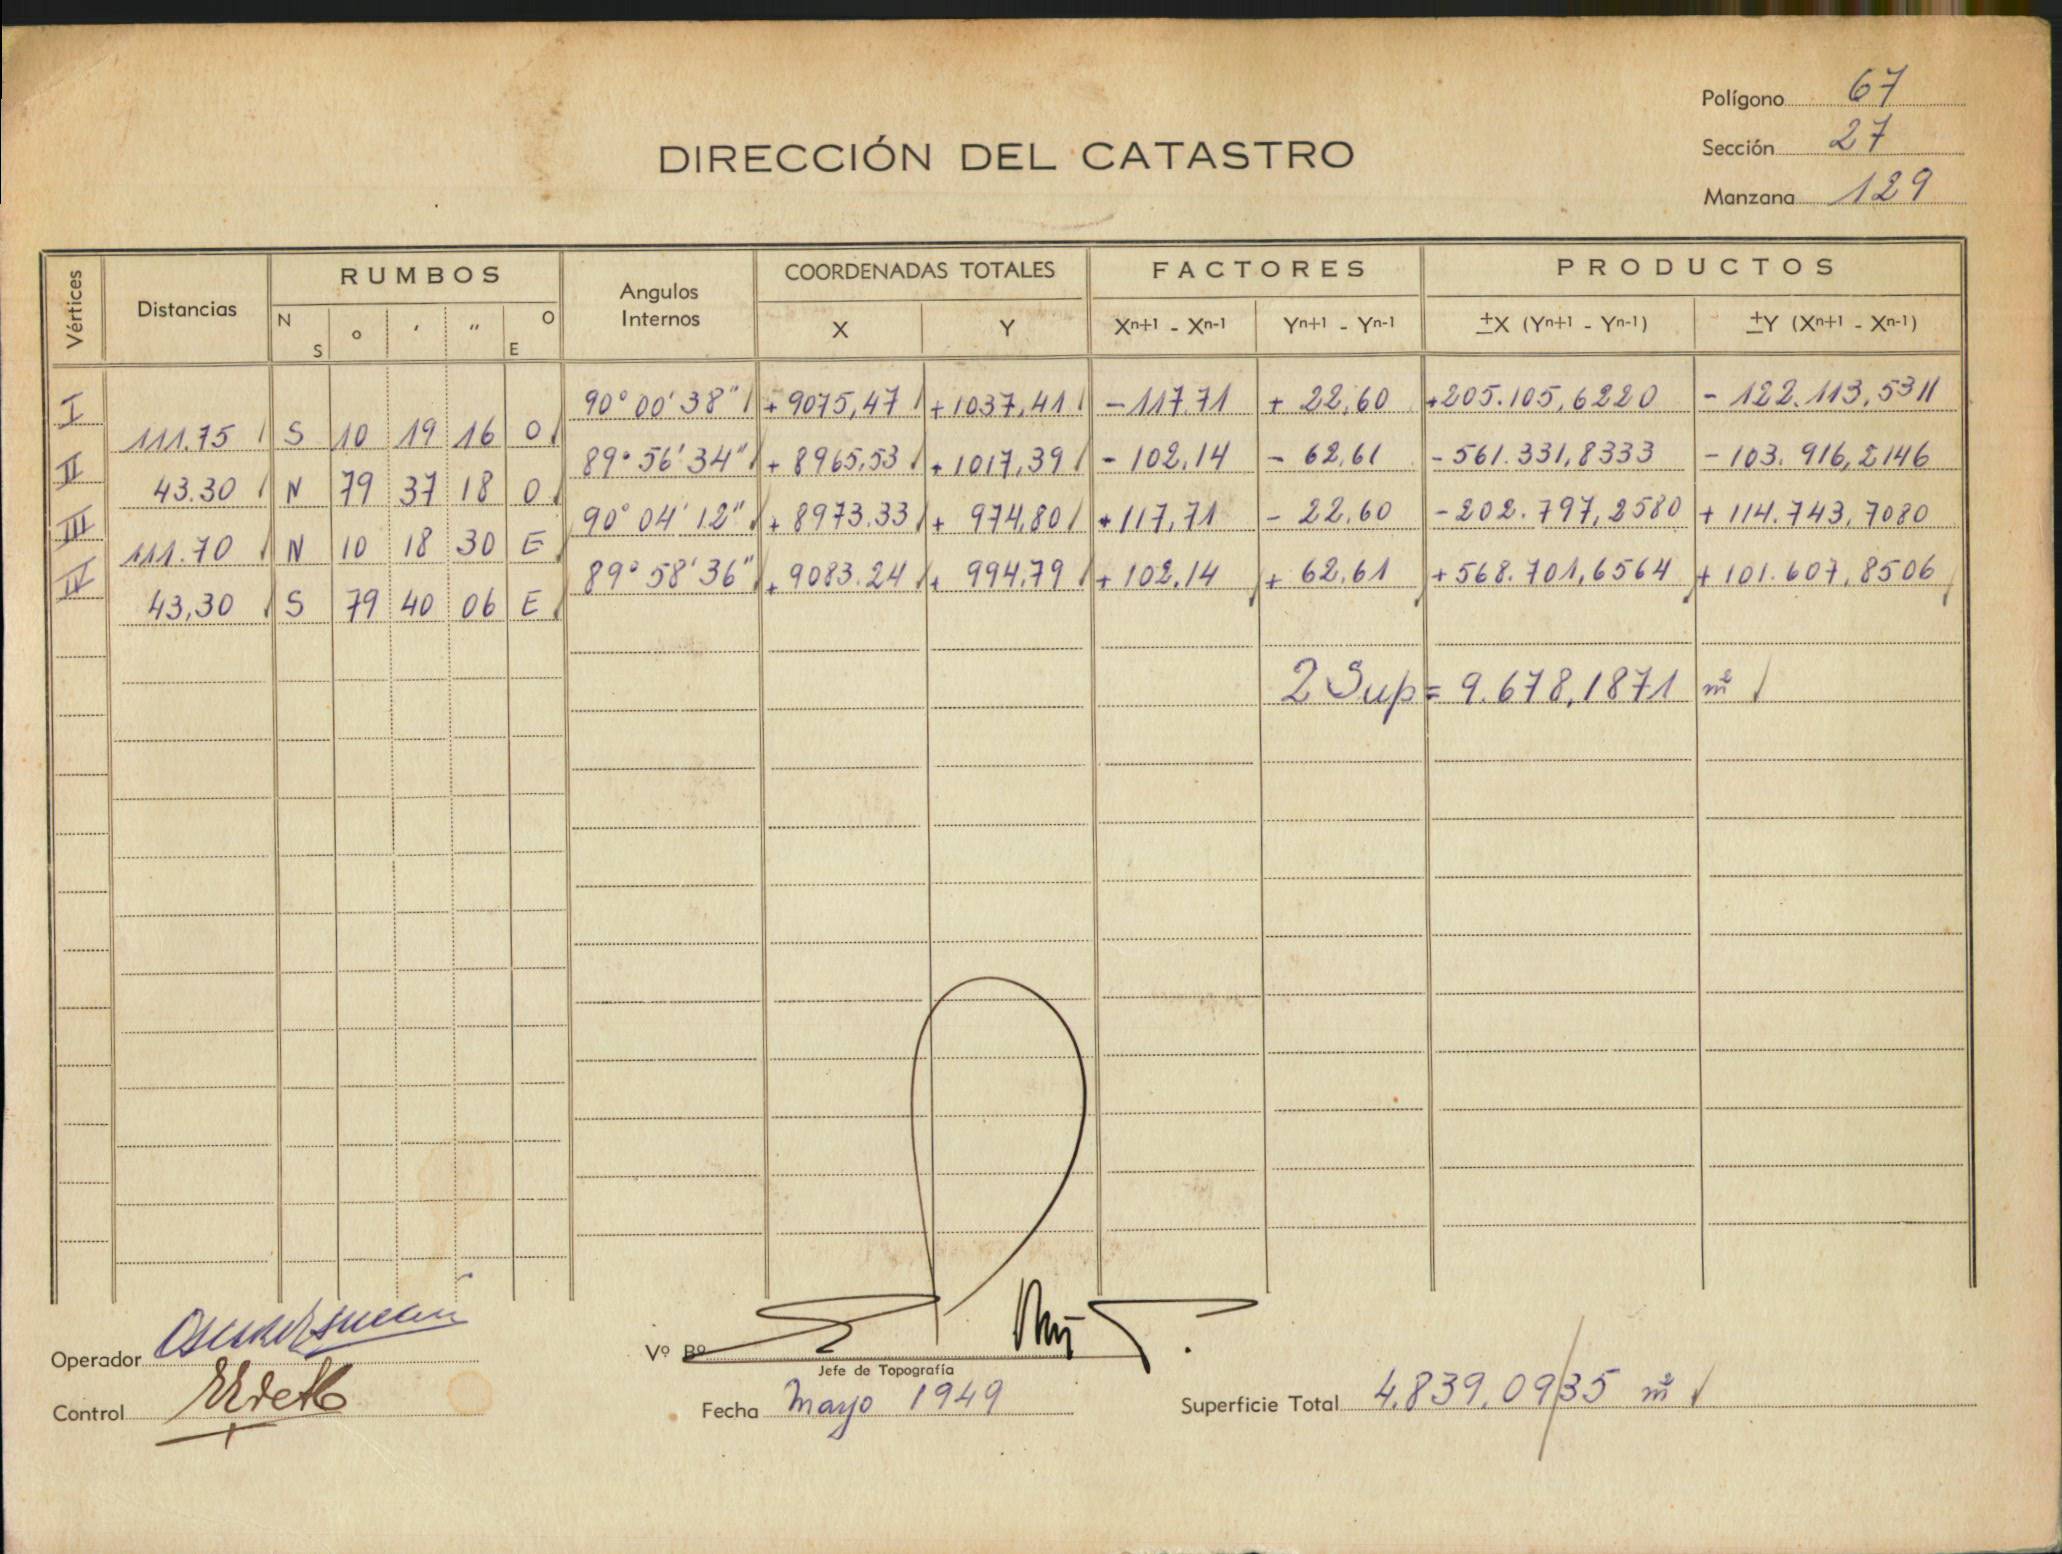 Polígono 67
DIRECCIÓN DEL CATASTRO
Sección 27
Manzana 129
Vértices Distancias RUMBOS Angulos Internos COORDENADAS TOTALES FACTORES PRODUCTOS
N S ° ′ ″ O E X Y Xn+1 - Xn-1 Yn+1 - Yn-1 ±X (Yn+1 - Yn-1) ±Y (Xn+1 - Xn-1)
I 90° 00' 38" +9075,47 +1037,41 -117.71 + 22,60 +205.105,6220 - 122.113,5311
111.75 S 10 19 16 O
II 89° 56' 34" + 8965,53 +1017,39 - 102,14 - 62,61 -561.331,8333 - 103.916,2146
43.30 N 79 37 18 O
III 90° 04' 12" + 8973.33 + 974,80 +117,71 - 22,60 -202.797,2580 + 114.743,7080
111.70 N 10 18 30 E
IV 89° 58' 36" + 9083.24 + 994,79 + 102,14 + 62,61 +568.701,6564 + 101.607,8506
43,30 S 79 40 06 E
2 Sup = 9.678,1871 m²
Operador
Vº Bº
Jefe de Topografía
Control
Fecha Mayo 1949
Superficie Total 4.839,09/35 m²